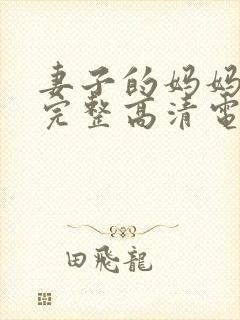 妻子的妈妈
完整高清電
田飛龍